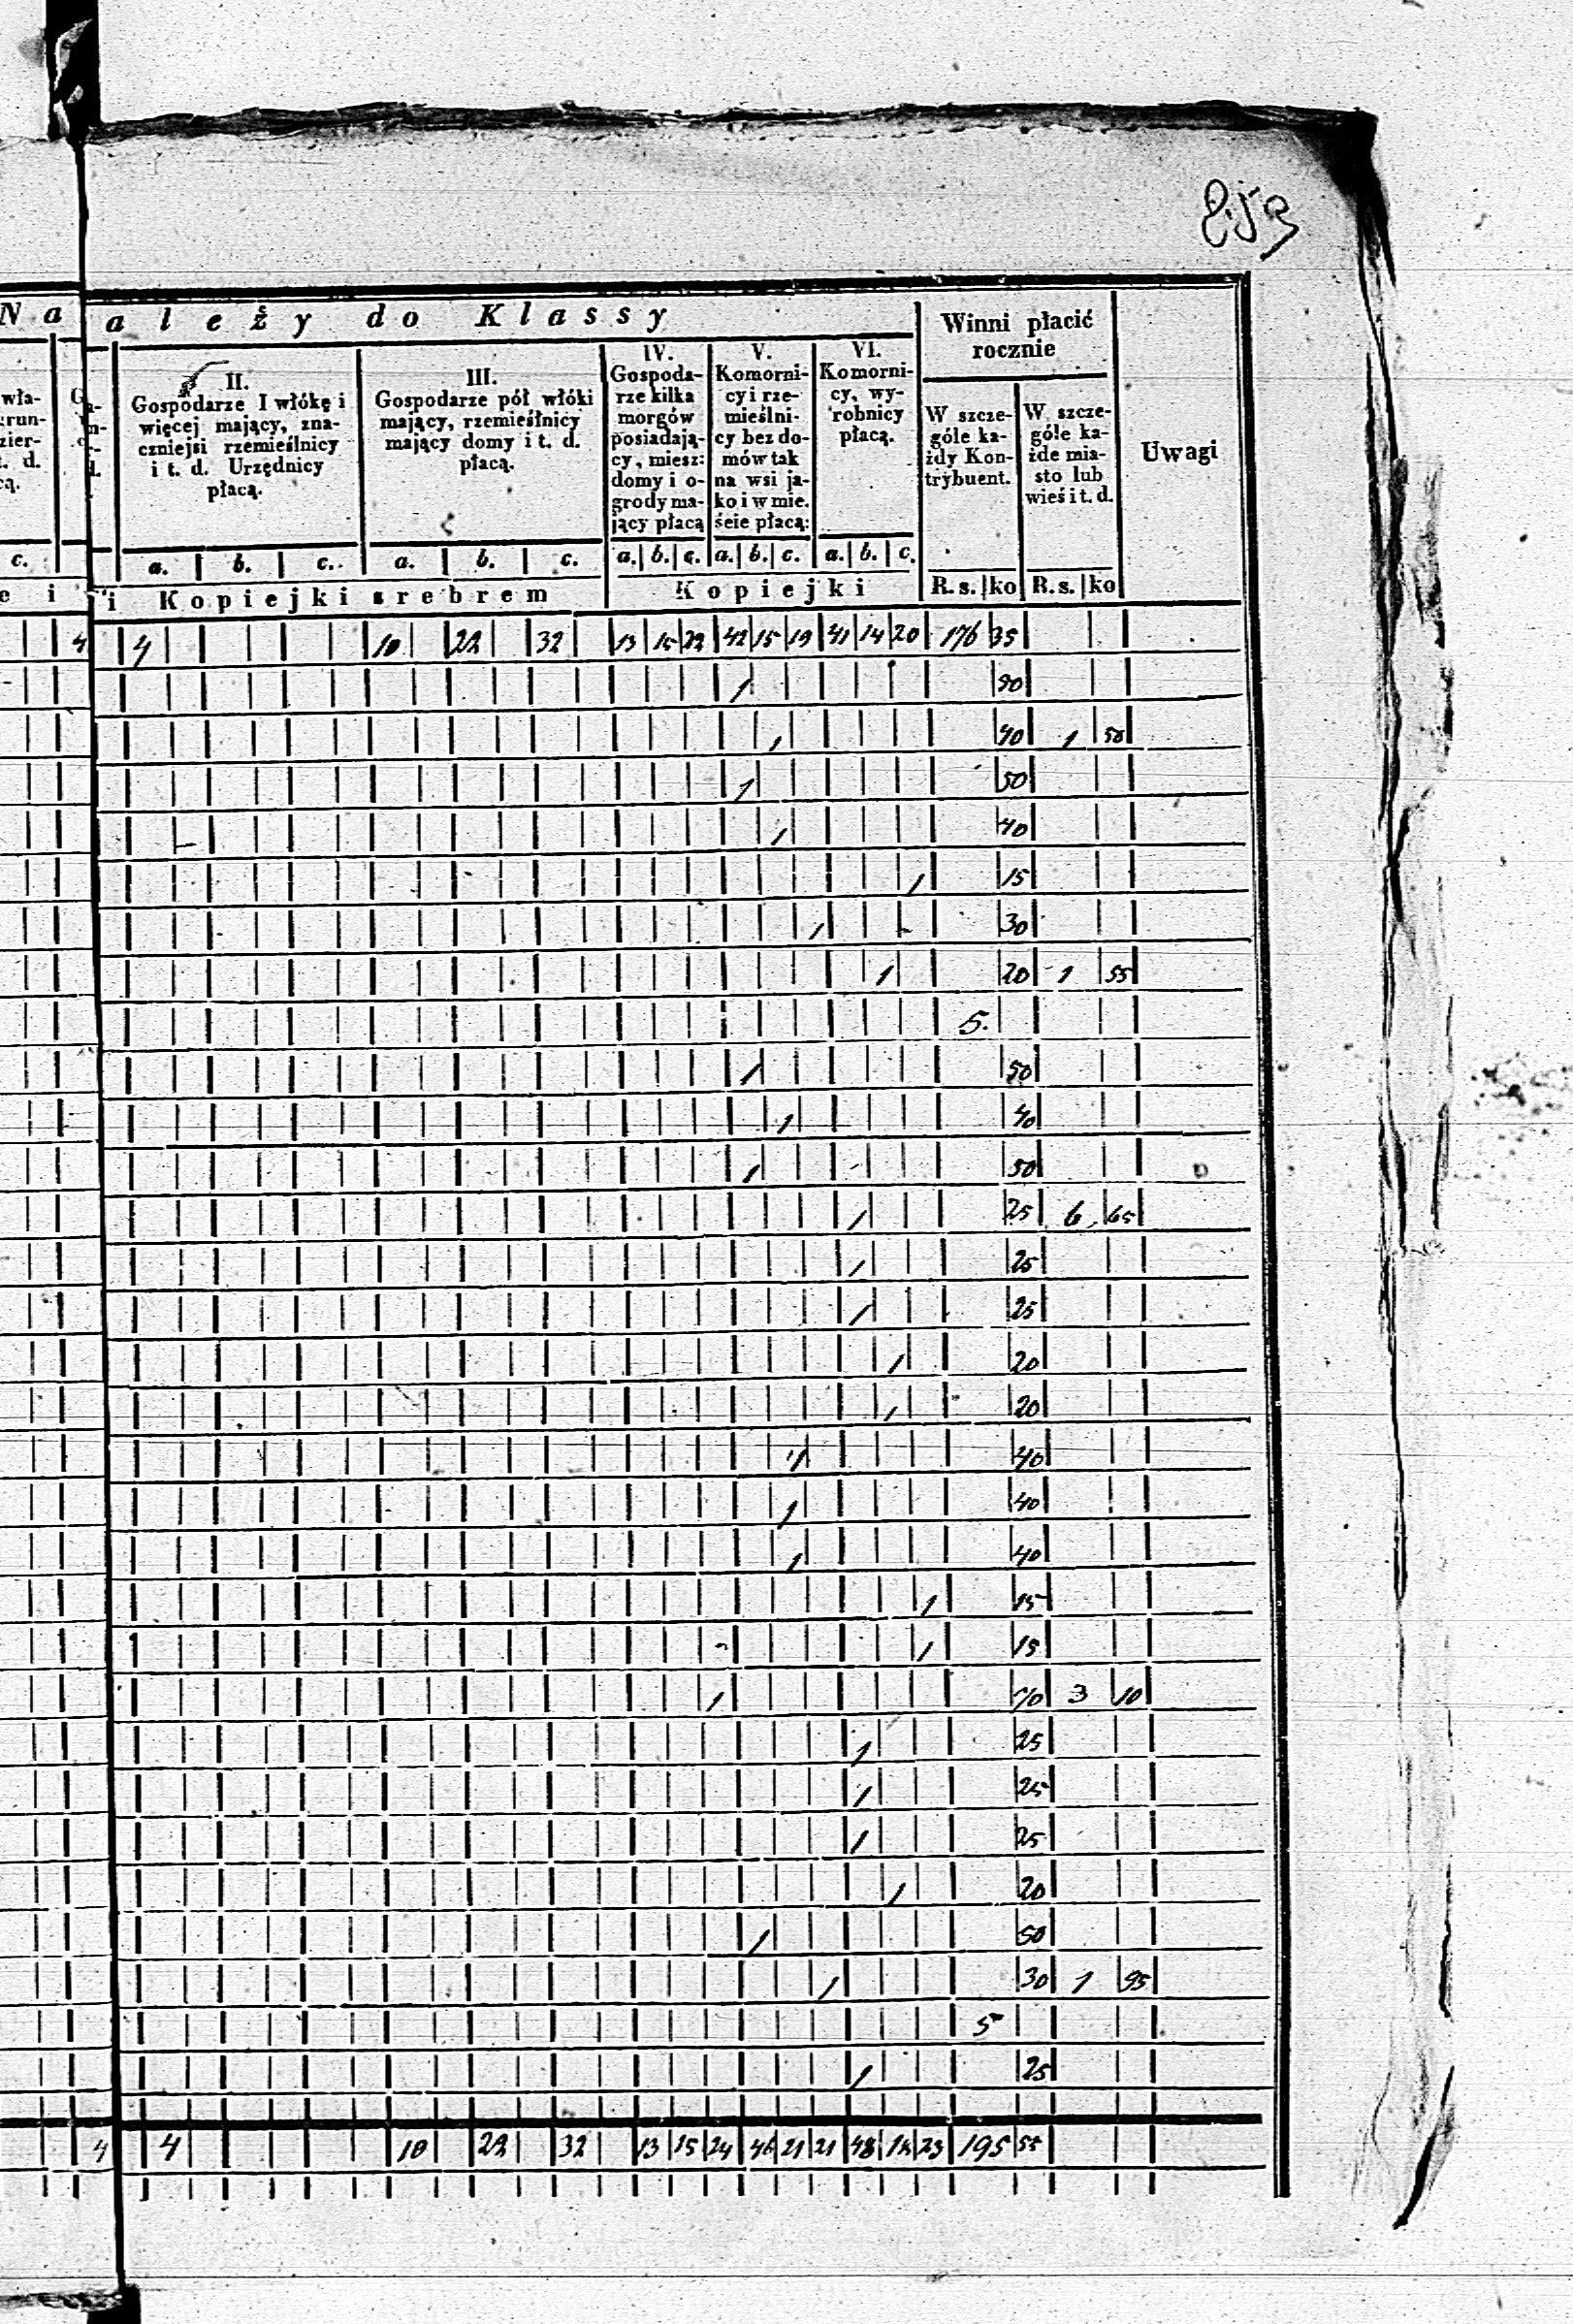 253
N a
a l e ż y do K l a s s y
Winni płacić rocznie
Uwagi
II.
Gospodarze I włókę i
więcej mający, zna-
czniejsi rzemieślnicy
i t. d. Urzędnicy
płacą.
III.
Gospodarze pół włóki
mający, rzemieślnicy
mający domy i t. d.
płacą.
IV.
Gospoda-
rze kilka
morgów
posiadają-
cy, miesz:
domy i o-
grody ma-
jący płacą
V.
Komorni-
cy i rze-
mieślni-
cy bez do-
mów tak
na wsi ja-
ko i w mie.
ście płacą:
VI.
Komorni-
cy, wy-
robnicy
płacą.
W szcze-
góle ka-
żdy Kon-
trybuent.
W szcze-
góle ka-
żde mia-
sto lub
wieś i t. d.
c. a. b. c. a. b. c. a. b. c. a. b. c. a. b. c.
e i i K o p i e j k i s r e b r e m K o p i e j k i R. s. ko R. s. ko
4 4 10 22 32 13 15 22 42 15 19 41 14 20 176 35
1
1 40 1
1 50
1 40
1 15
1 30
1 20 1 55
5.
1 50
1 40
1 50
1 25 6 65
1 25
1 25
1 20
1 20
1 40
1 40
1 40
1 15
1 15
1 70 3 10
1 25
1 25
1 25
1 20
1 50
1 30 1 95
5
1 25
4 4 10 22 32 13 15 24 46 21 21 48 18 23 195 55